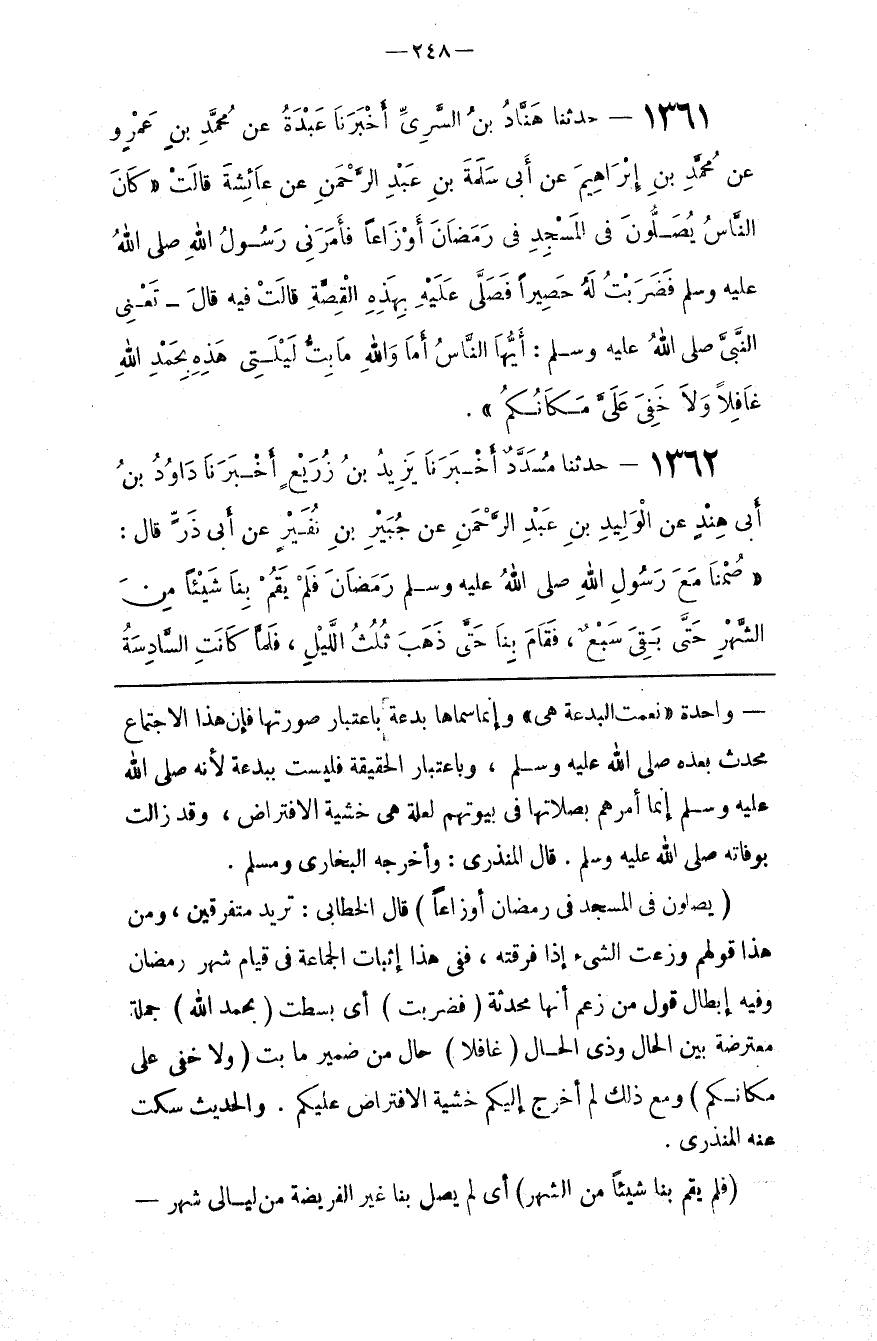 — ٢٤٨ —
١٣٦١ — حدثنا هَنَّادُ بنُ السَّرِىِّ أَخْبَرَنَا عَبْدَةُ عن مُحمَّدِ بنِ عَمْرٍو
عن مُحمَّدِ بنِ إِبْرَاهِيمَ عن أَبى سَلَمَةَ بنِ عَبْدِ الرَّحْمَنِ عن عَائِشةَ قالَتْ « كَانَ
النَّاسُ يُصَلُّونَ فى المَسْجِدِ فى رَمَضَانَ أَوْزَاعاً فأَمَرَنِى رَسُولُ اللهِ صلى اللهُ
عليه وسلم فَضَرَبْتُ لَهُ حَصِيراً فَصَلَّى عَلَيْهِ بِهَذِهِ الْقِصَّةِ قالَتْ فيه قالَ – تَعْنِى
النَّبىَّ صلى اللهُ عليه وسلم : أَيُّهَا النَّاسُ أَمَا وَاللهِ مَا بِتُّ لَيْلَتِى هَذِهِ بِحَمْدِ اللهِ
غَافِلاً وَلاَ خَفِىَ عَلَىَّ مَكَانُكُمُ » .
١٣٦٢ — حدثنا مُسَدَّدٌ أَخْبَرَنَا يَزِيدُ بنُ زُرَيْعٍ أَخْبَرَنَا دَاوُدُ بنُ
أَبى هِنْدٍ عن الْوَلِيدِ بنِ عَبْدِ الرَّحْمَنِ عن جُبَيْرِ بنِ نُفَيْرٍ عن أَبى ذَرٍّ قال :
« صُمْنَا مَعَ رَسُولِ اللهِ صلى اللهُ عليه وسلم رَمَضَانَ فَلَمْ يَقُمْ بِنَا شَيْئاً مِنَ
الشَّهْرِ حَتَّى بَقِىَ سَبْعٌ ، فَقَامَ بِنَا حَتَّى ذَهَبَ ثُلُثُ اللَّيْلِ ، فَلَمَّا كَانَتِ السَّادِسَةُ
— واحدة « نعمت البدعة هى » وإنما سماها بدعة باعتبار صورتها فإن هذا الاجتماع
محدث بعده صلى الله عليه وسلم ، وباعتبار الحقيقة فليست ببدعة لأنه صلى الله
عليه وسلم إنما أمرهم بصلاتها فى بيوتهم لعلة هى خشية الافتراض ، وقد زالت
بوفاته صلى الله عليه وسلم . قال المنذرى : وأخرجه البخارى ومسلم .
( يصلون فى المسجد فى رمضان أوزاعاً ) قال الخطابى : تريد متفرقين ، ومن
هذا قولهم وزعت الشىء إذا فرقته ، ففى هذا إثبات الجماعة فى قيام شهر رمضان
وفيه إبطال قول من زعم أنها محدثة ( فضربت ) أى بسطت ( بحمد الله ) جملة
معترضة بين الحال وذى الحال ( غافلا ) حال من ضمير ما بت ( ولا خفى على
مكانكم ) ومع ذلك لم أخرج إليكم خشية الافتراض عليكم . والحديث سكت
عنه المنذرى .
( فلم يقم بنا شيئاً من الشهر ) أى لم يصل بنا غير الفريضة من ليالى شهر —